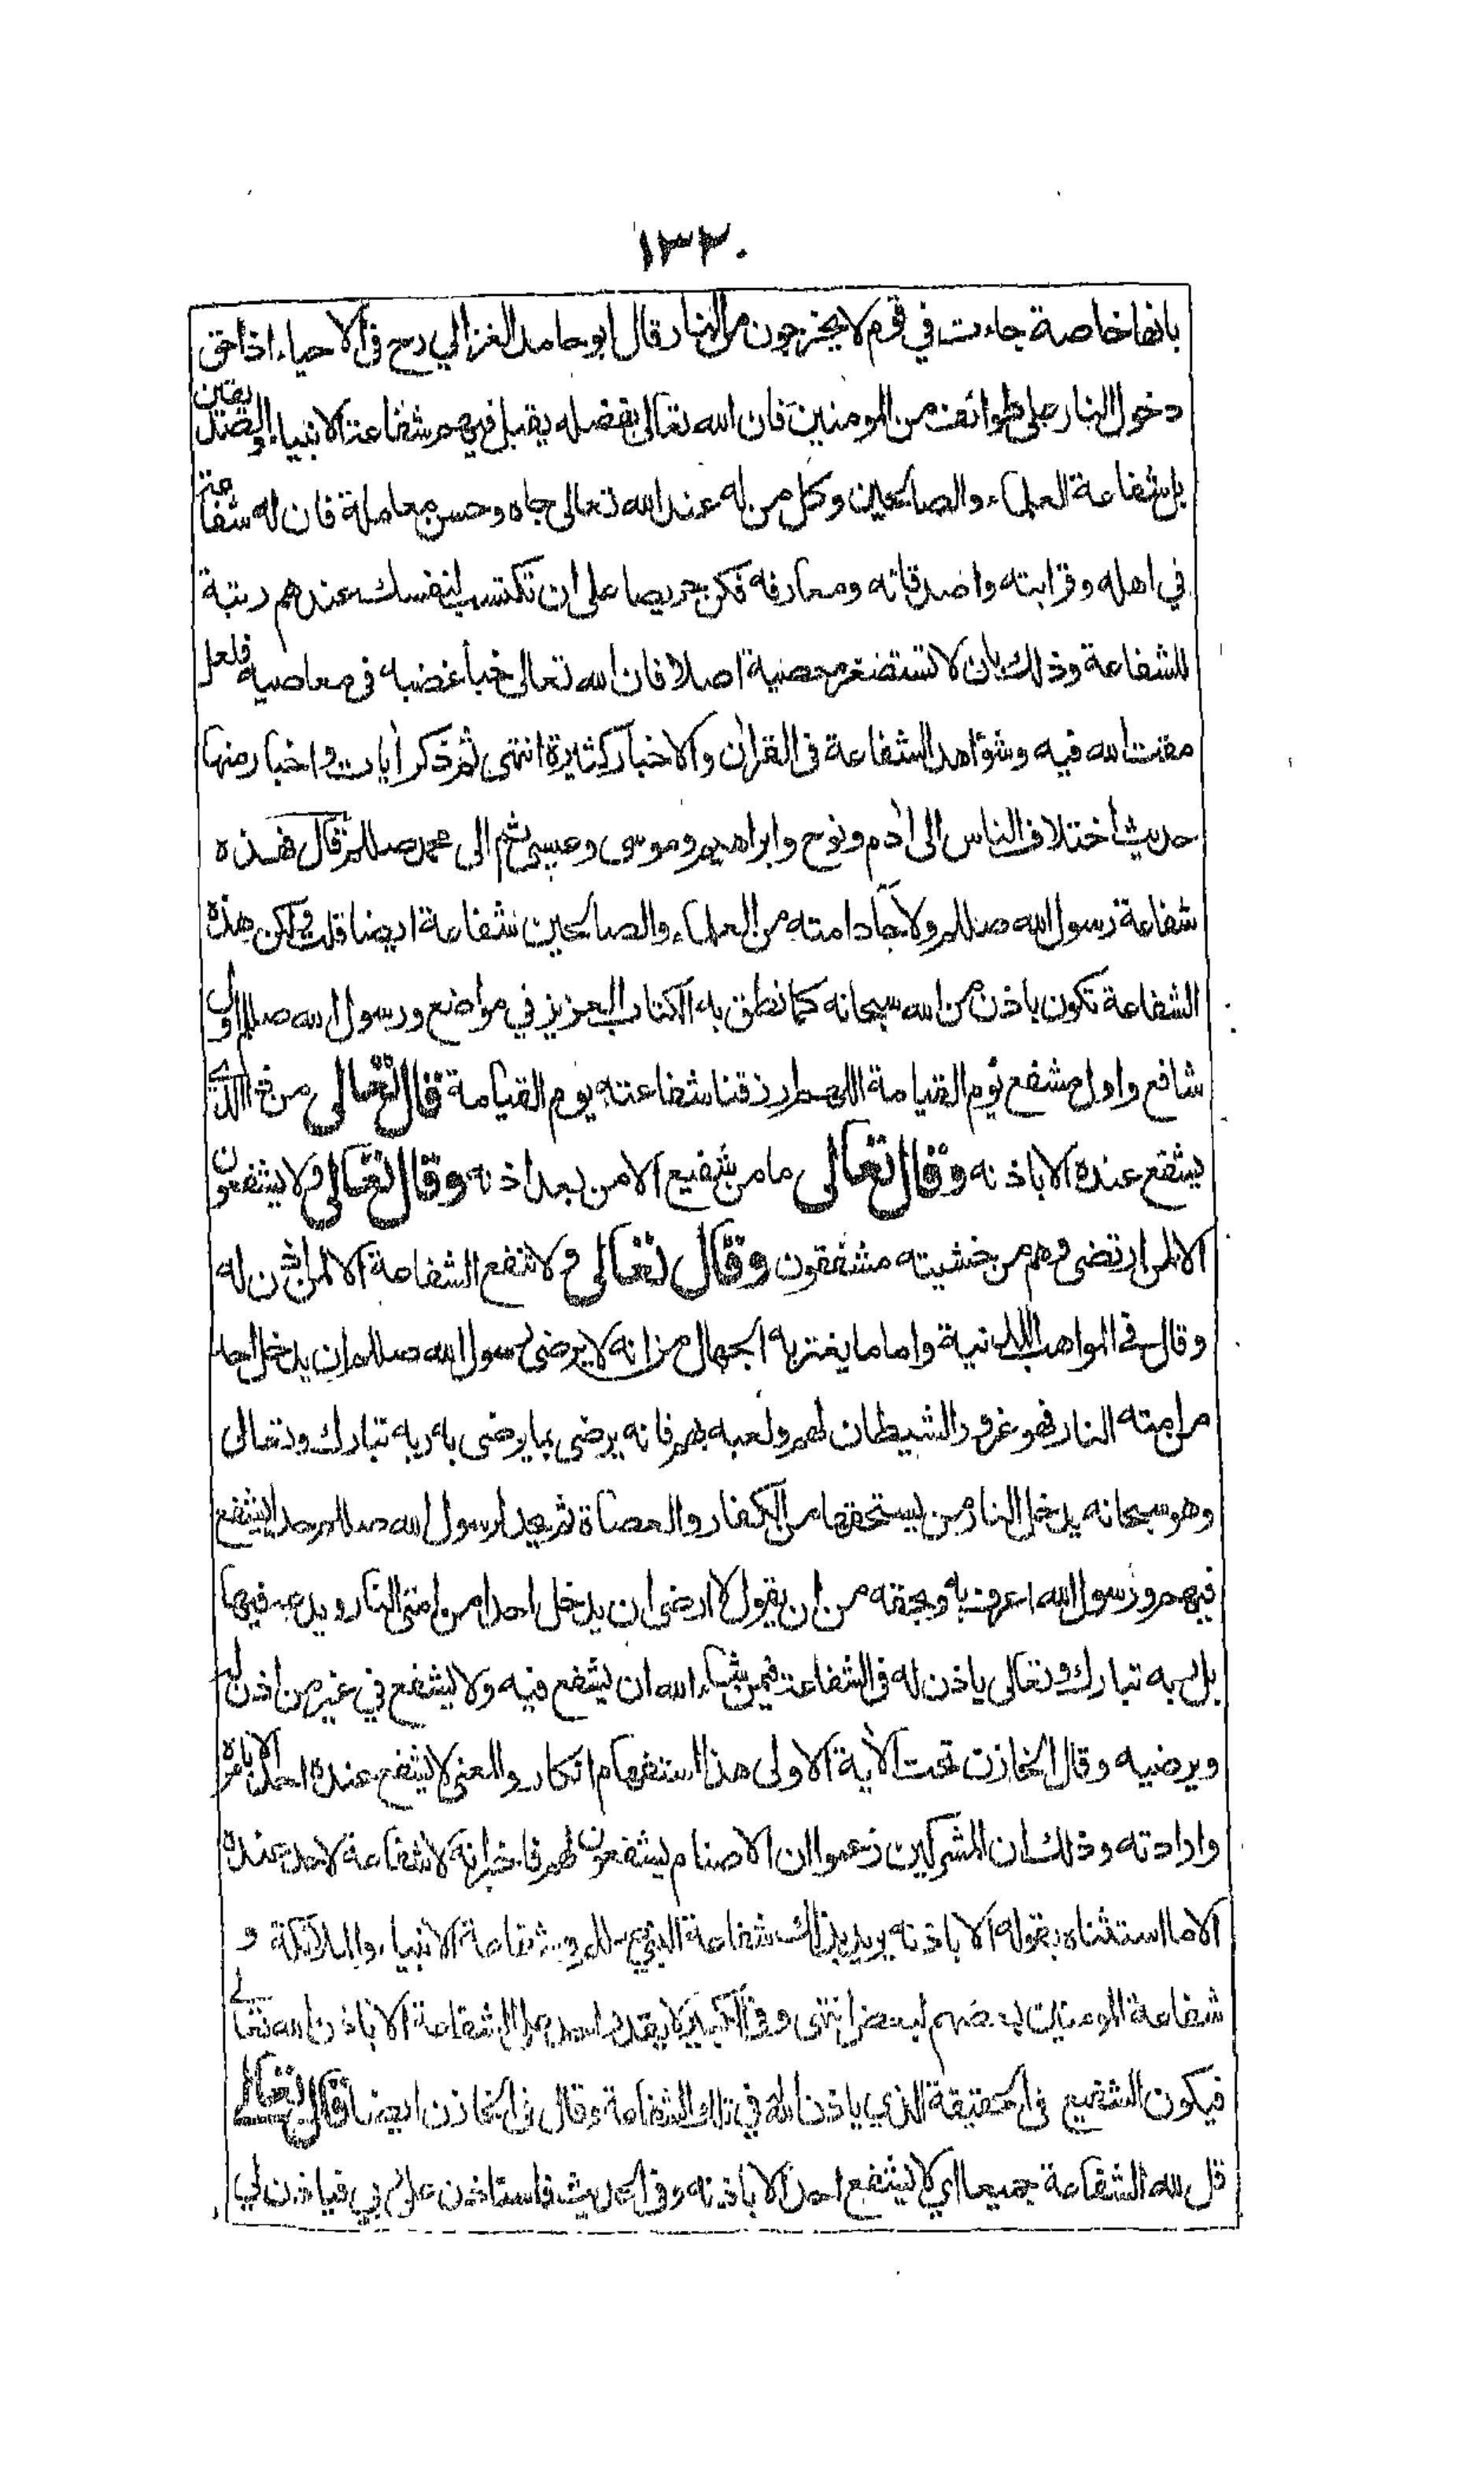 ١٣٢٠
بانها خاصة جاءت في قوم لا يخرجون من النار قال ابو حامد الغزالي رح في الاحياء اذا حق
دخول النار على طوائف من المومنين فان الله تعالى بفضله يقبل فيهم شفاعة الانبياء والصديقين
بل شفاعة العلماء والصالحين وكل من له عند الله تعالى جاه وحسن معاملة فان له شفاعة
في اهله وقرابته واصدقائه ومعارفه فكن حريصا على ان تكتسب لنفسك عندهم رتبة
للشفاعة وذلك بان لا تستصغر معصية اصلا فان الله تعالى خبأ غضبه في معاصيه فلعل
مقت الله فيه وشواهد الشفاعة في القرآن والاخبار كثيرة انتهى ثم ذكر أيات واخبار منها
حديث أختلاف الناس الى أدم ونوح وابراهيم وموسى وعيسى ثم الى محمد صللم ثم قال فهذه
شفاعة رسول الله صللم ولآحاد امته من العلماء والصالحين شفاعة ايضا قلت ولكن هذه
الشفاعة تكون باذن من الله سبحانه كما نطق به الكتاب العزيز في مواضع ورسول الله صللم اول
شافع واول مشفع يوم القيامة اللهم ارزقنا شفاعته يوم القيامة قال تعالى من ذا الذي
يشفع عنده الا باذنه وقال تعالى ما من شفيع الا من بعد اذنه وقال تعالى ولا يشفعون
الا لمن ارتضى وهم من خشيته مشفقون وقال تعالى ولا تنفع الشفاعة الا لمن اذن له
وقال في المواهب اللدنية واما ما يغتر به الجهال من انه لا يرضى رسول الله صللم ان يدخل احد
من امته النار فهو غرور الشيطان لهم ولعبه بهم فانه يرضى بما يرضى به ربه تبارك وتعالى
وهو سبحانه يدخل النار من يستحقها من الكفار والعصاة ثم يحد لرسول الله صللم حدا ليشفع
فيهم ورسول الله اعرف به وبحقه من ان يقول لا ارضى ان يدخل احدا من امتى النار ويدعه فيها
بل ربه تبارك وتعالى ياذن له في الشفاعة فيمن شاء الله ان يشفع فيه ولا يشفع في غير من اذن له
ويرضيه وقال الخازن تحت الأية الاولى هذا استفهام انكار والمعنى لا يشفع عنده احد الا بامره
وارادته وذلك ان المشركين زعموا ان الاصنام يشفعون لهم فاخبر انه لا شفاعة لاحد عنده
الا ما استثناه بقوله الا باذنه يريد بذلك شفاعة النبي صللم وشفاعة الانبياء والملائكة و
شفاعة المومنين بعضهم لبعض انتهى وفي الكبير لا يقدر احد على الشفاعة الا باذن الله تعالى
فيكون الشفيع في الحقيقة الذي ياذن الله في تلك الشفاعة وقال في الخازن ايضا قال تعالى
قل لله الشفاعة جميعا اي لا يشفع احد الا باذنه وفي الحديث فاستاذن على ربي فياذن لي